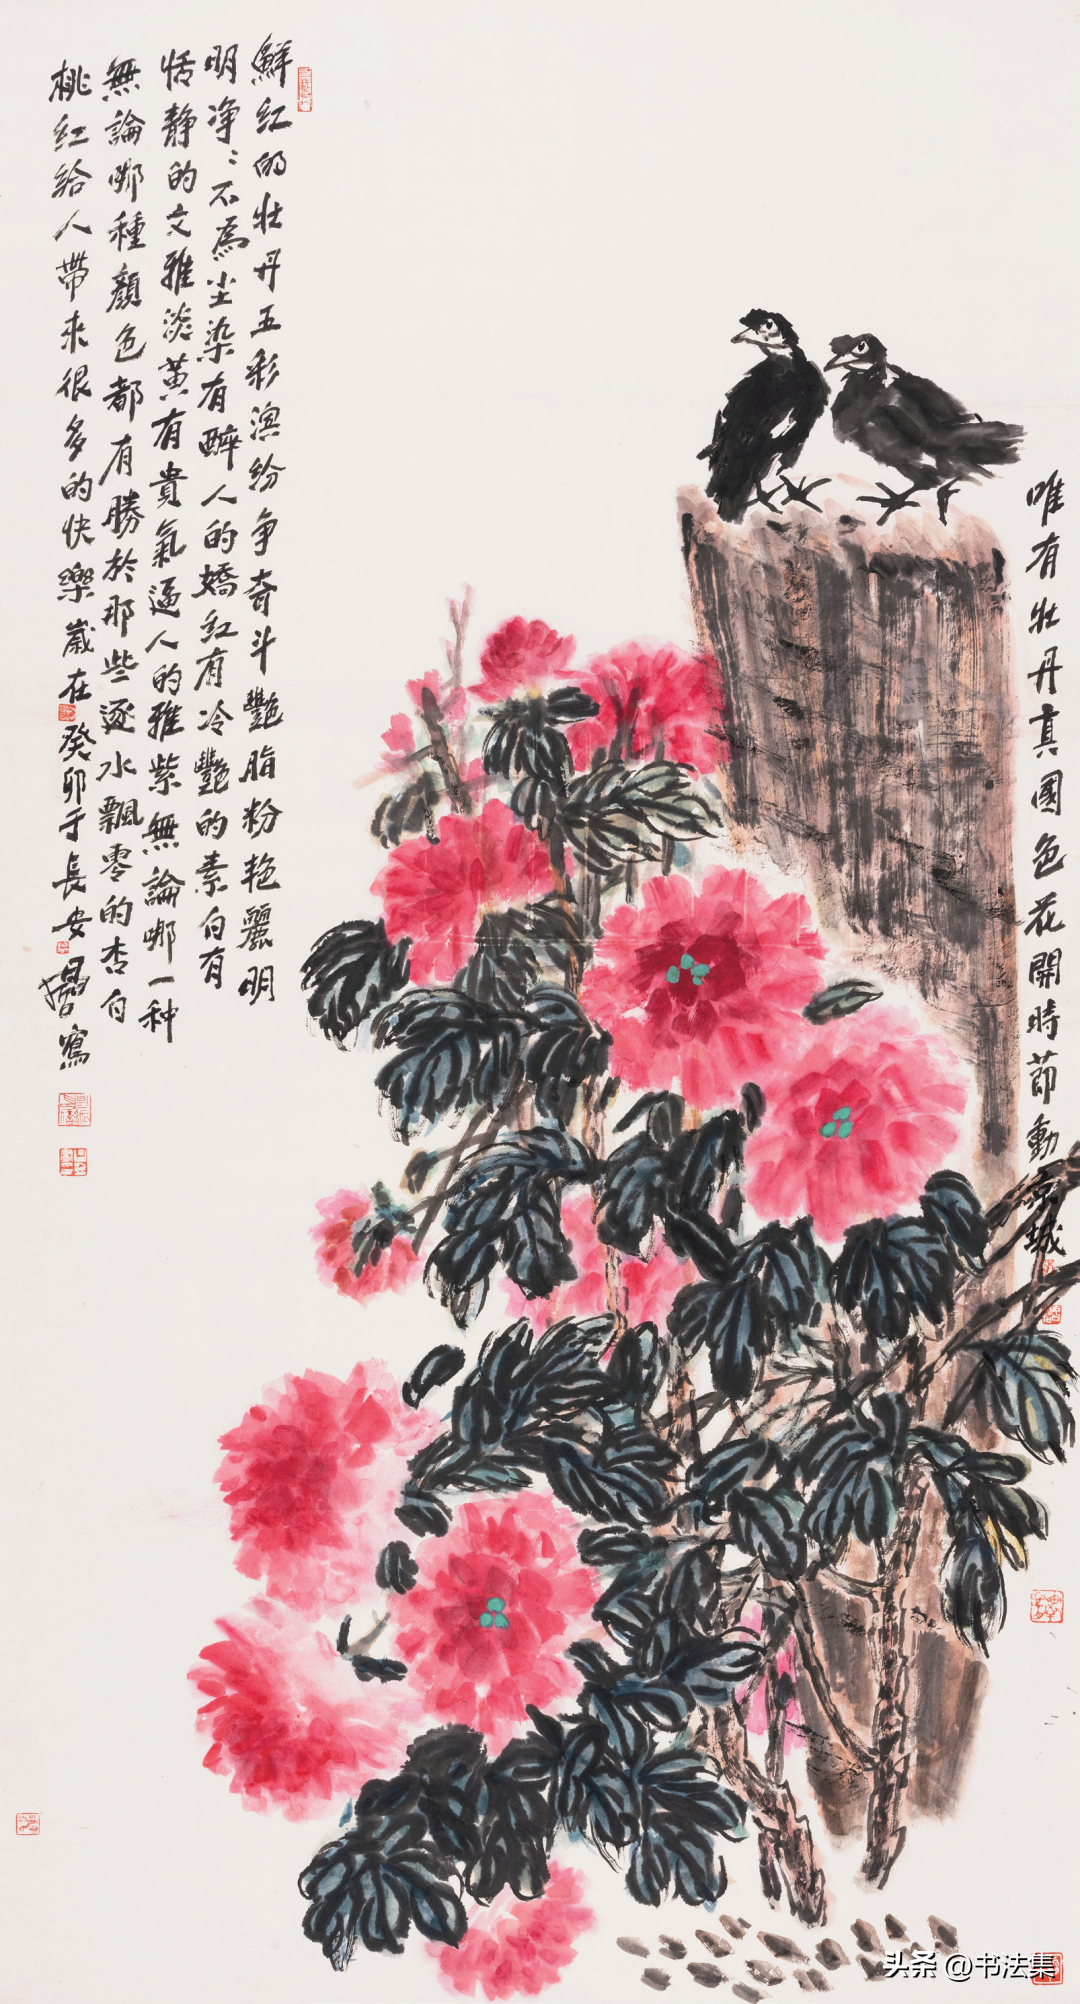 唯有牡丹真國色花開時節動京城
鮮红的牡丹五彩滨纷争奇斗艷脂粉艳麗明
明净〻不為尘染有醉人的嬌红有冷艷的素白有
恬静的文雅淡黄有貴氣逼人的雅紫無論哪一种
無論哪種顏色都有勝於那些逐水飄零的杏白
桃红给人帶来很多的快樂歲在癸卯于長安寫
头条 @书法集